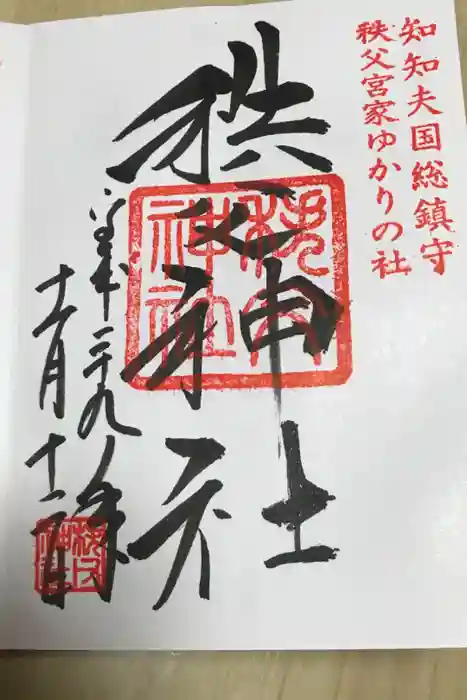 知知夫国総鎮守
秩父宮家ゆかりの社
秩父神社
平成二十九年
十二月十二日
秩父神社